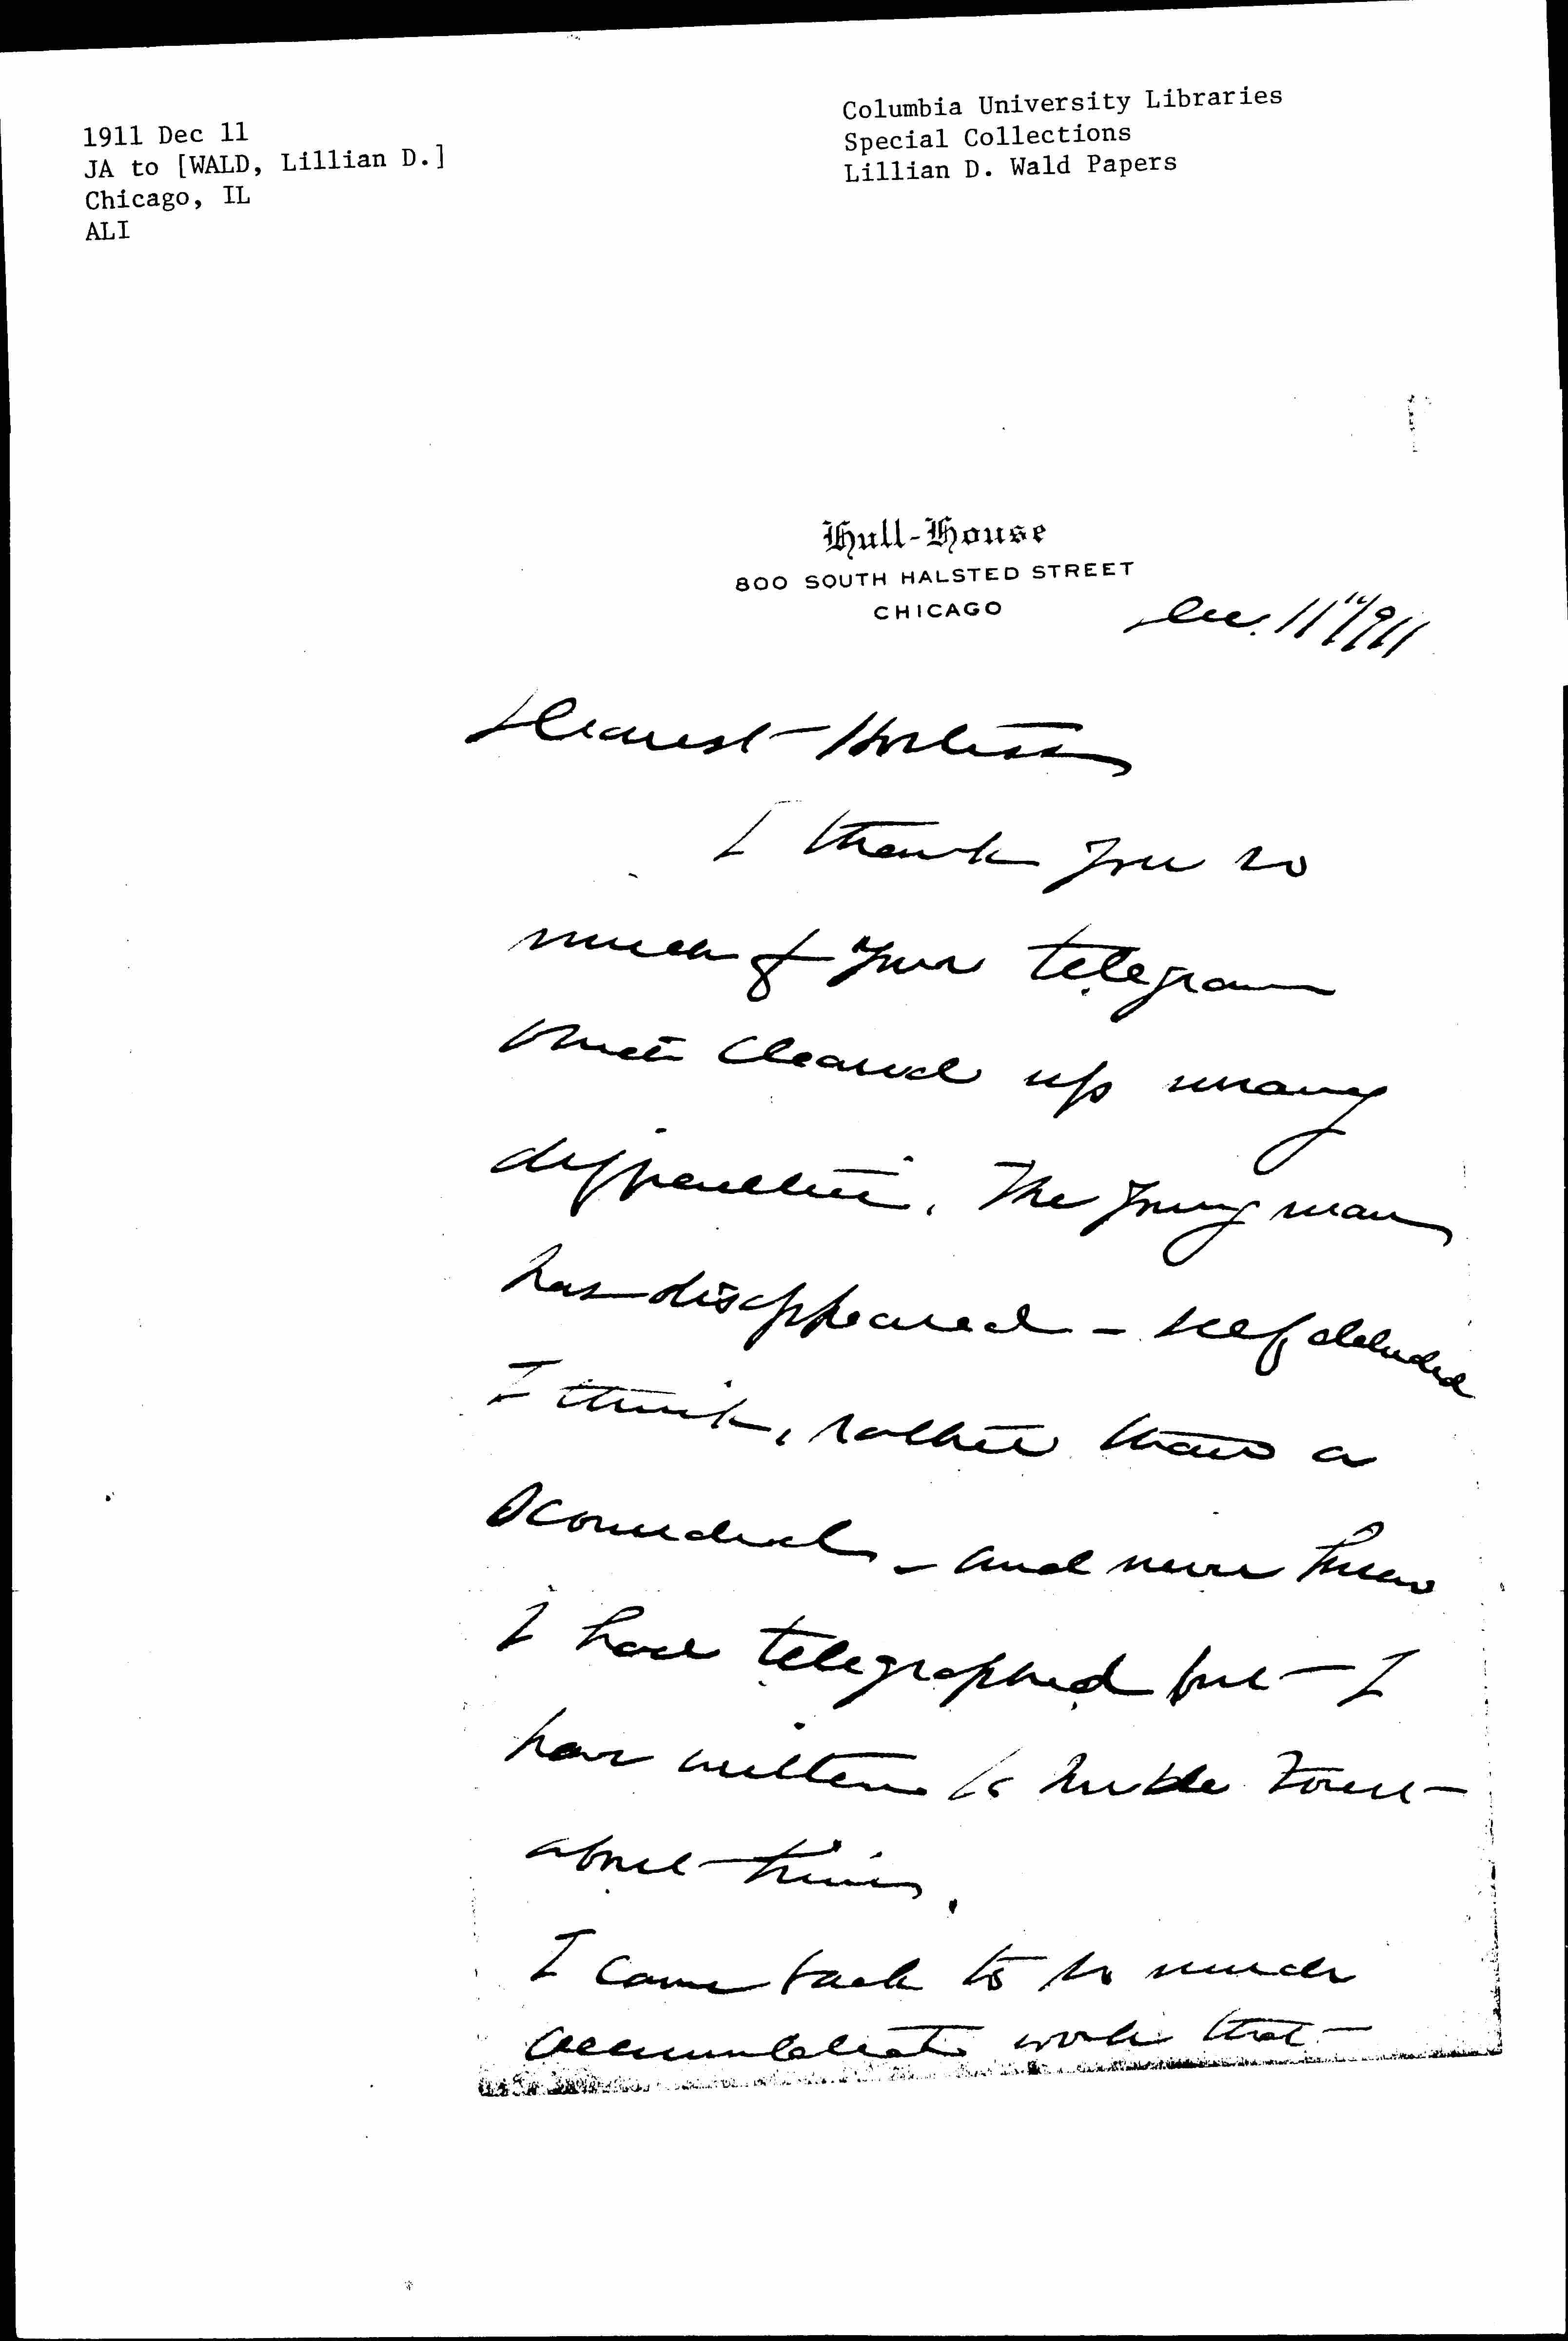 1911 Dec 11
JA to [WALD, Lillian D.]
Chicago, IL
ALI
Columbia University Libraries
Special Collections
Lillian D. Wald Papers
Hull-House
800 SOUTH HALSTED STREET
CHICAGO
Dec. 11" 1911
Dearest
I thank you so
much for your telegram
which cleared up many
difficulties. The young man
has disappeared - self deluded
I think, rather than a
scoundrel - and never knew
I had telegraphed but I
have written to
about him.
I came back to so much
accumulated work that